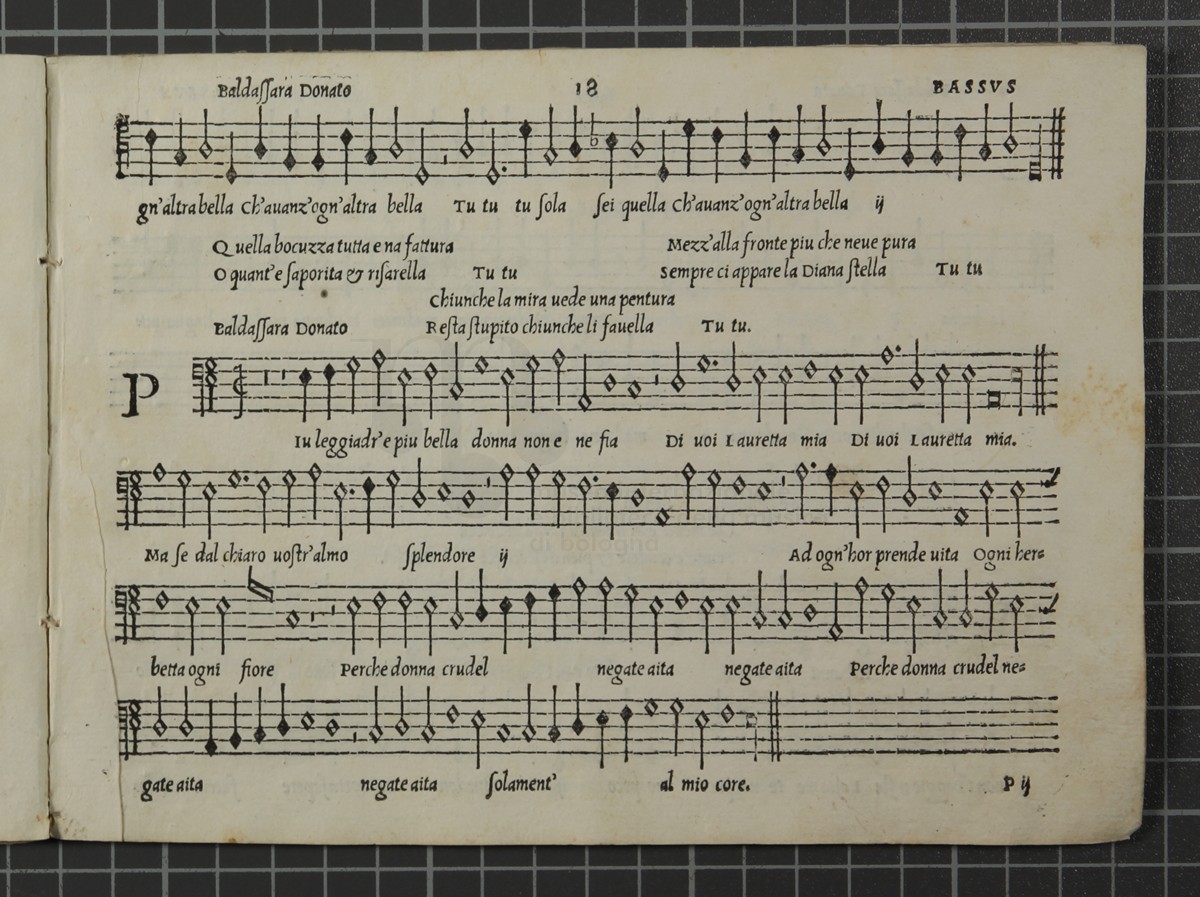 Baldaſſara Donato 18 BASSVS
gn'altra bella Ch'auanz'ogn'altra bella Tu tu tu ſola ſei quella Ch'auanz'ogn'altra bella ij
Quella bocuzza tutta e na fattura Mezz'alla fronte piu che neue pura
O quant'e ſaporita & riſarella Tu tu Sempre ci appare la Diana ſtella Tu tu
Chiunche la mira uede una pentura
Baldaſſara Donato Reſta ſtupito chiunche li fauella Tu tu.
P
Iu leggiadr'e piu bella donna non e ne fia Di uoi Lauretta mia Di uoi Lauretta mia.
Ma ſe dal chiaro uoſtr'almo ſplendore ij Ad ogn'hor prende uita Ogni her=
betta ogni fiore Perche donna crudel negate aita negate aita Perche donna crudel ne=
gate aita negate aita ſolament' al mio core.
P ij